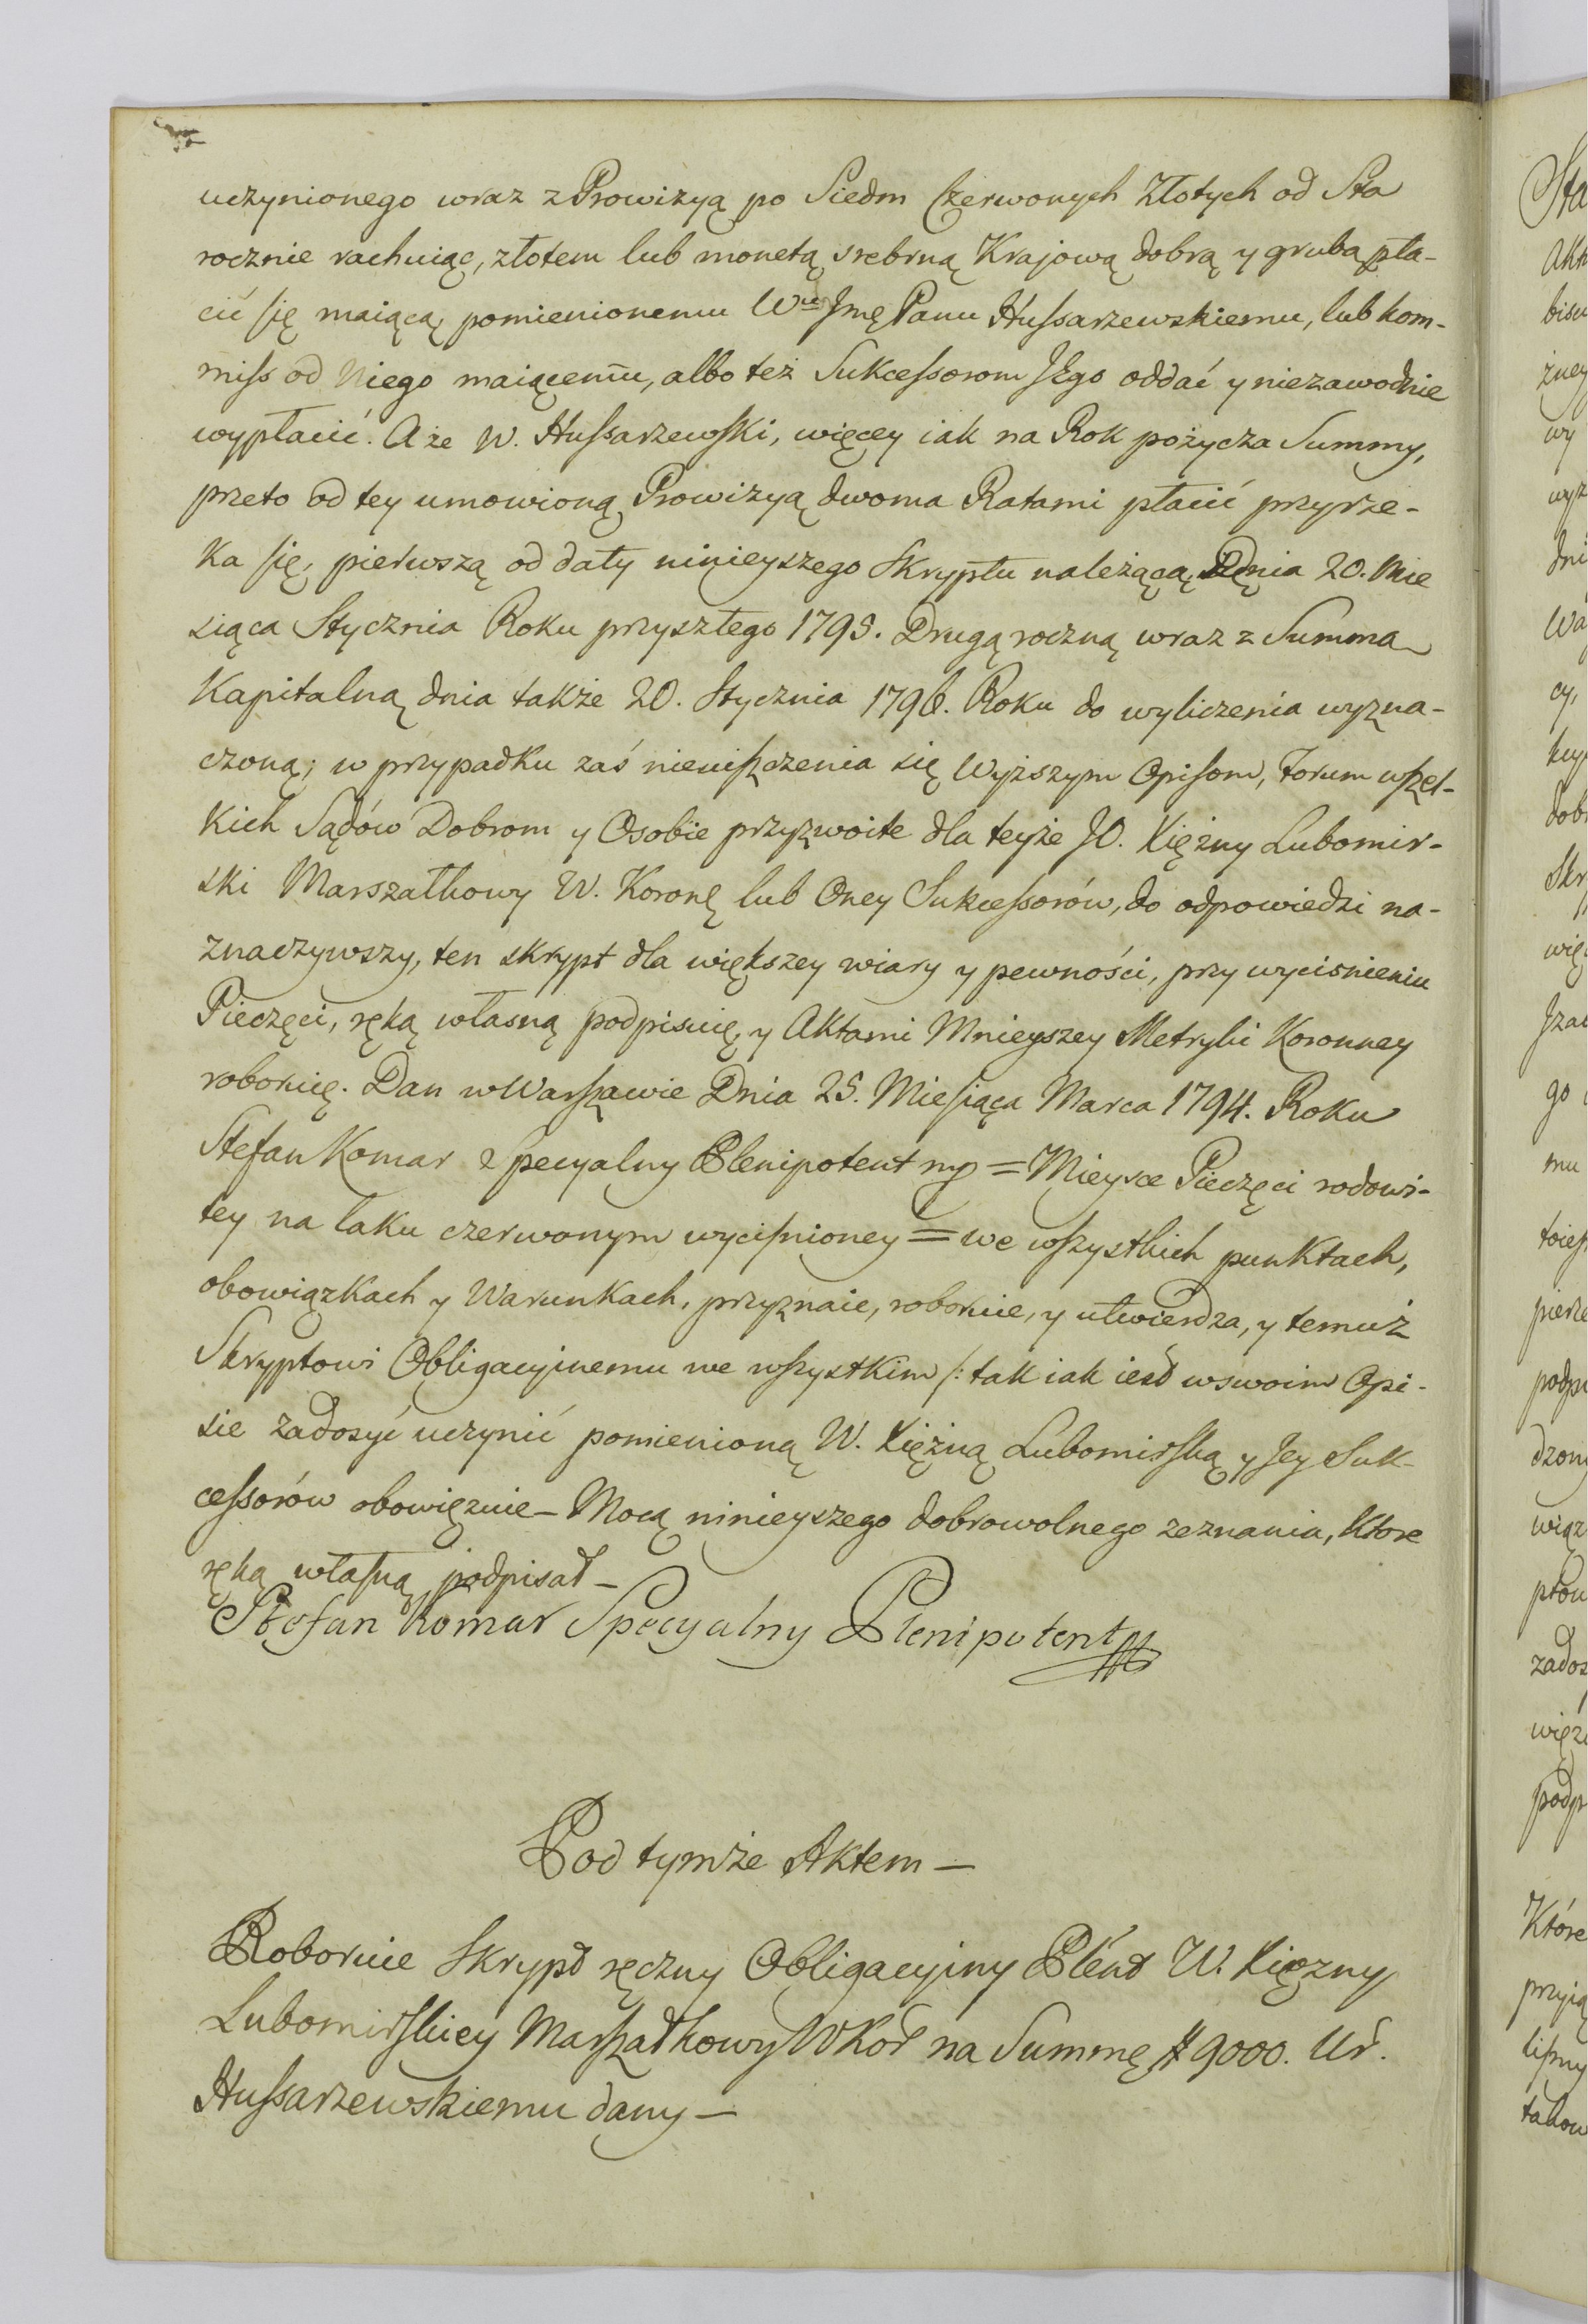 uczynionego wraz z Prowizyą po Siedm Czerwonych Złotych od Sta
rocznie rachuiąc, złotem lub monetą srebrną Krajową dobrą y grubą pła-
cić się maiącą, pomienionemu Wu Jmę Panu Hussarzewskiemu, lub kom-
miss od Niego maiącemu, albo też Sukcessorom JEgo oddać y niezawodnie
wypłacić. A że W. Hussarzewski, więcey iak na Rok pożycza Summy,
przeto od tey umowioną Prowizyą dwoma Ratami płacić przyrze-
ka się, pierwszą od daty ninieyszego Skryptu należącą, Dnia 20. Mie
siąca Stycznia Roku przyszłego 1795. Drugą roczną wraz z Summa
Kapitalną dnia także 20. Stycznia 1796. Roku do wyliczenia wyzna-
czoną; w przypadku zaś nieuiszczenia się Wyższym Opisom, Forum wszel-
kich Sądów Dobrom y Osobie przyzwoite dla teyże JO. Xiężny Lubomir-
ski Marszałkowy W. Koronę lub Oney Sukcessorów, do odpowiedzi na-
znaczywszy, ten skrypt dla większey wiary y pewności, przy wycisnieniu
Pieczęci, ręką własną podpisuię, y Aktami Mnieyszey Metryki Koronney
roboruię. Dan w Warszawie Dnia 25. Miesiąca Marca 1794. Roku
Stefan Komar Specyalny Plenipotent mp = Mieysce Pieczęci rodowi-
tey na laku czerwonym wycisnioney = we wszystkich punktach,
obowiązkach y Warunkach, przyznaie, roboruie, y utwierdza, y temuż
Skryptowi Obligacyjnemu we wszystkim /: tak iak iest w swoim Opi-
sie zadosyć uczynić pomienioną W. Xiężną Lubomirską y Jey Suk-
cessorów obowięzuie – Mocą ninieyszego dobrowolnego zeznania, Ktore
ręką własną podpisał –
Stefan Komar Specyalny Plenipotent
Pod tymże Aktem –
Roboruie Skrypt ręczny Obligacyjny Plent W. Xiężny
Lubomirskiey Marszałkowy W Kor na Summę # 9000. Ur.
Hussarzewskiemu dany –